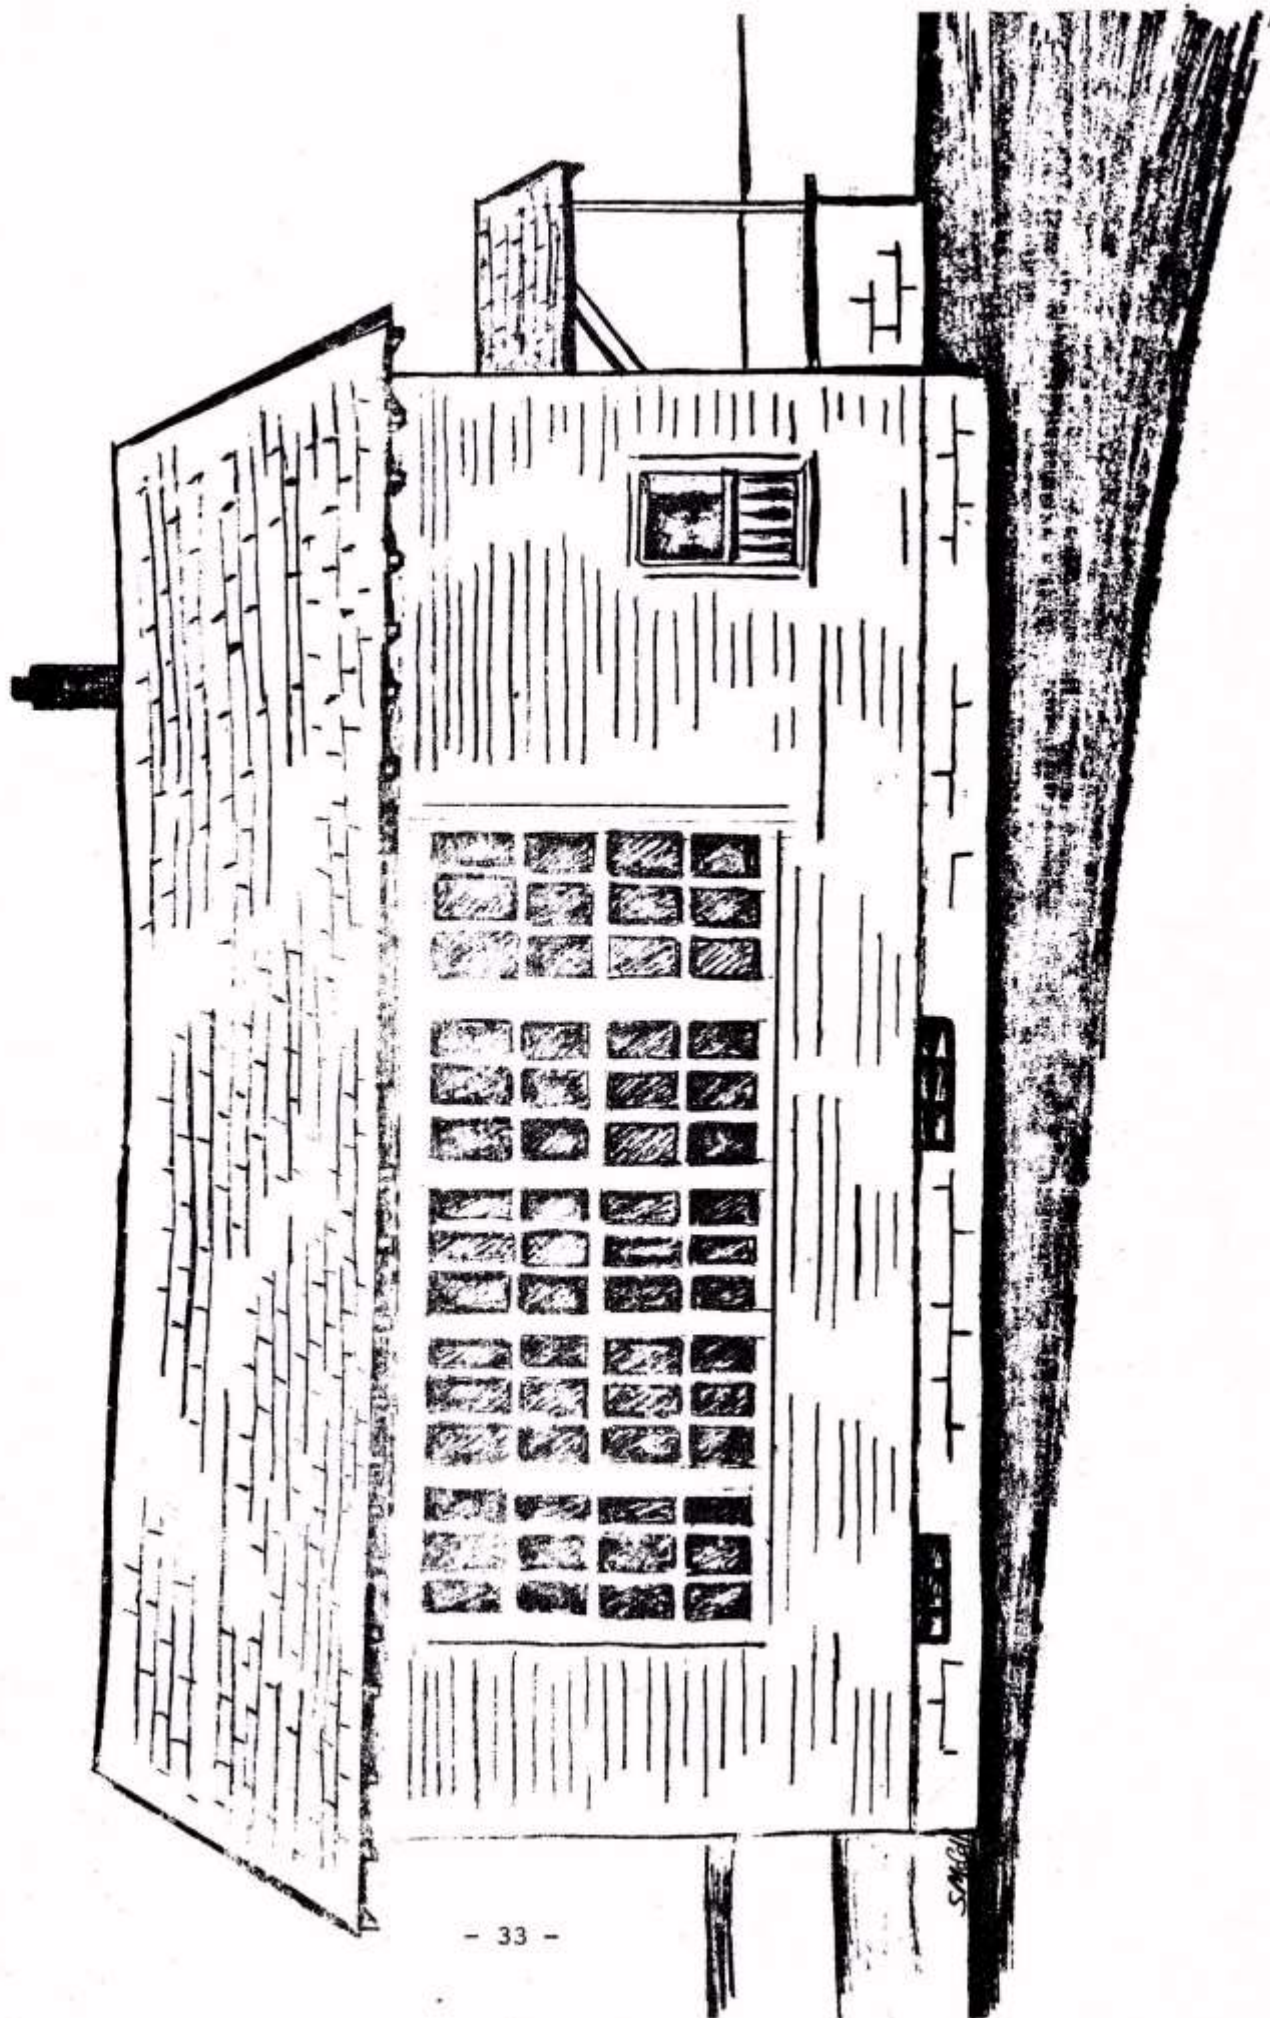 - 33 -